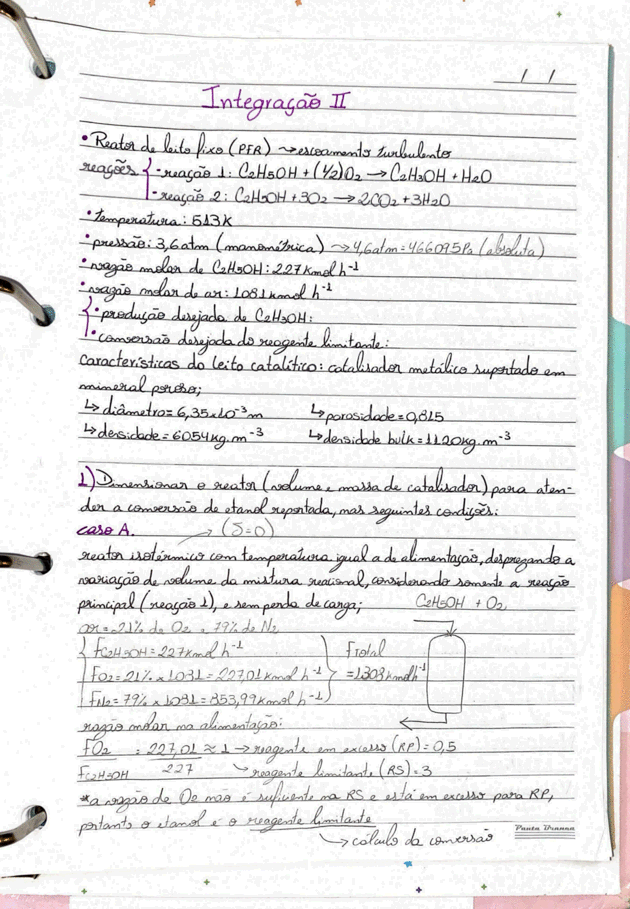 / /
Integração II
• Reator de leito fixo (PFR) → escoamento turbulento
reações { • reação 1: C2H5OH + (1/2)O2 → C2H3OH + H2O
• reação 2: C2H5OH + 3O2 → 2CO2 + 3H2O
• temperatura: 513K
• pressão: 3,6atm (manométrica) → 4,6atm = 466095Pa (absoluta)
• vazão molar de C2H5OH: 227 Kmol h⁻¹
• vazão molar de ar: 1081 Kmol h⁻¹
{ • produção desejada de C2H3OH:
• conversão desejada do reagente limitante:
características do leito catalítico: catalisador metálico suportado em
mineral poroso;
↳ diâmetro = 6,35x10⁻³ m ↳ porosidade = 0,815
↳ densidade = 6054 kg.m⁻³ ↳ densidade bulk = 1120 kg.m⁻³
1) Dimensionar o reator (volume e massa de catalisador) para aten-
der a conversão de etanol reportada, nas seguintes condições:
caso A. → (δ=0)
reator isotérmico com temperatura igual a de alimentação, desprezando a
variação de volume da mistura reacional, considerando somente a reação
principal (reação 1), e sem perda de carga; C2H5OH + O2
ar = 21% de O2 e 79% de N2
{ FC2H5OH = 227 kmol h⁻¹ } Ftotal
FO2 = 21% x 1081 = 227,01 kmol h⁻¹ = 1308 kmol h⁻¹
FN2 = 79% x 1081 = 853,99 kmol h⁻¹
razão molar na alimentação:
FO2 : 227,01 ≈ 1 → reagente em excesso (RP) = 0,5
FC2H5OH 227 ↳ reagente limitante (RS) = 3
*a vazão de O2 não é suficiente na RS e está em excesso para RP,
portanto o etanol é o reagente limitante
↳ cálculo da conversão
Pauta Branca